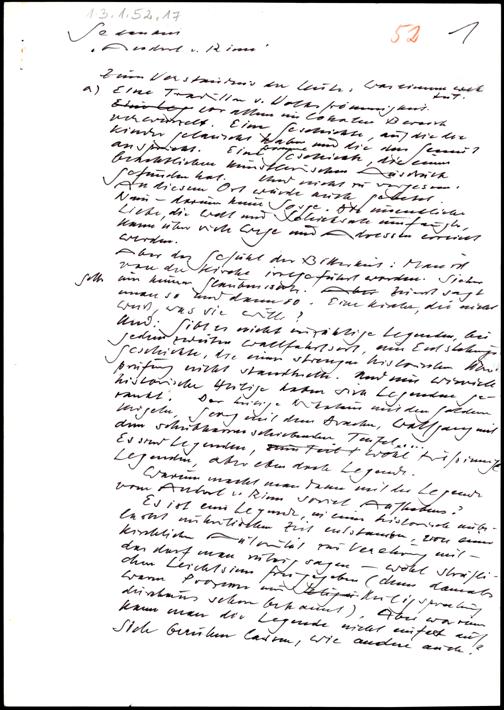 13.1.52.17
52 1
Seemann
"Anderl v. Rinn"
Zum Verständnis der Leute. Was einem weh tut.
a) Eine Tradition v. Volksfrömmigkeit
vor allem im lokalen Bereich
verwurzelt. Eine Geschichte, auf die die
Kinder gelauscht haben und die das Gemüt
anspricht. Eine Geschichte, die einen
beachtlichen künstlerischen Ausdruck
gefunden hat. Und nicht zu vergessen:
An diesem Ort wurde auch gebetet.
Nun - darum keine Sorge. Die unendliche
Liebe, die Welt und Schicksale umfängt,
kann über viele Wege und Adressen erreicht
werden.
Aber das Gefühl der Bitterkeit: Man ist
von der Kirche irregeführt worden. Sicher
in keiner Glaubenssache. Aber zuerst sagt
man so und dann so. Eine Kirche, die nicht
weiß, was sie will?
Und: Gibt es nicht unzählige Legenden, bei
jedem zweiten Wallfahrtsort, eine Entstehungs-
geschichte, die einer strengen historischen Über-
prüfung nicht standhält. Und um wieviele
historische Heilige haben sich Legenden ge-
rankt. Der heilige Nikolaus mit den goldenen
Kugeln, Georg mit dem Drachen, Wolfgang mit
dem schubkarrenschiebenden Teufel....
Es sind Legenden, wohl
Legenden, aber eben doch Legende.
Warum macht man dann mit der Legende
vom Anderl v. Rinn soviel Aufhebens?
Es ist eine Legende, in einer historisch
unkritischen Zeit entstanden, von einer
kirchlichen Autorität zur Verehrung mit -
das darf man ruhig sagen - wohl sträfli-
chem Leichtsinn freigegeben (denn damals
waren Prozesse und Heiligsprechung
durchaus schon bekannt). Aber warum
kann man die Legende nicht einfach auf
sich beruhen lassen, wie andere auch?